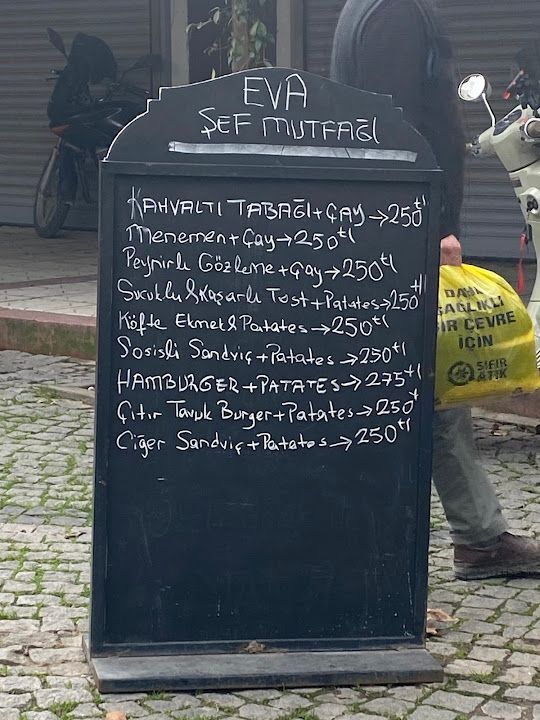 EVA
ŞEF MUTFAĞI
KAHVALTI TABAĞI + ÇAY → 250 tl
menemen + Çay → 250 tl
Peynirli Gözleme + Çay → 250 tl
Sucuklu & Kaşarlı Tost + Patates → 250 tl
Köfte Ekmek & Patates → 250 tl
Sosisli Sandviç + Patates → 250 tl
HAMBURGER + PATATES → 275 tl
Çıtır Tavuk Burger + Patates → 250 t
Ciğer Sandviç + Patates → 250 tl
DAHA
SAĞLIKLI
BİR ÇEVRE
İÇİN
SIFIR
ATIK